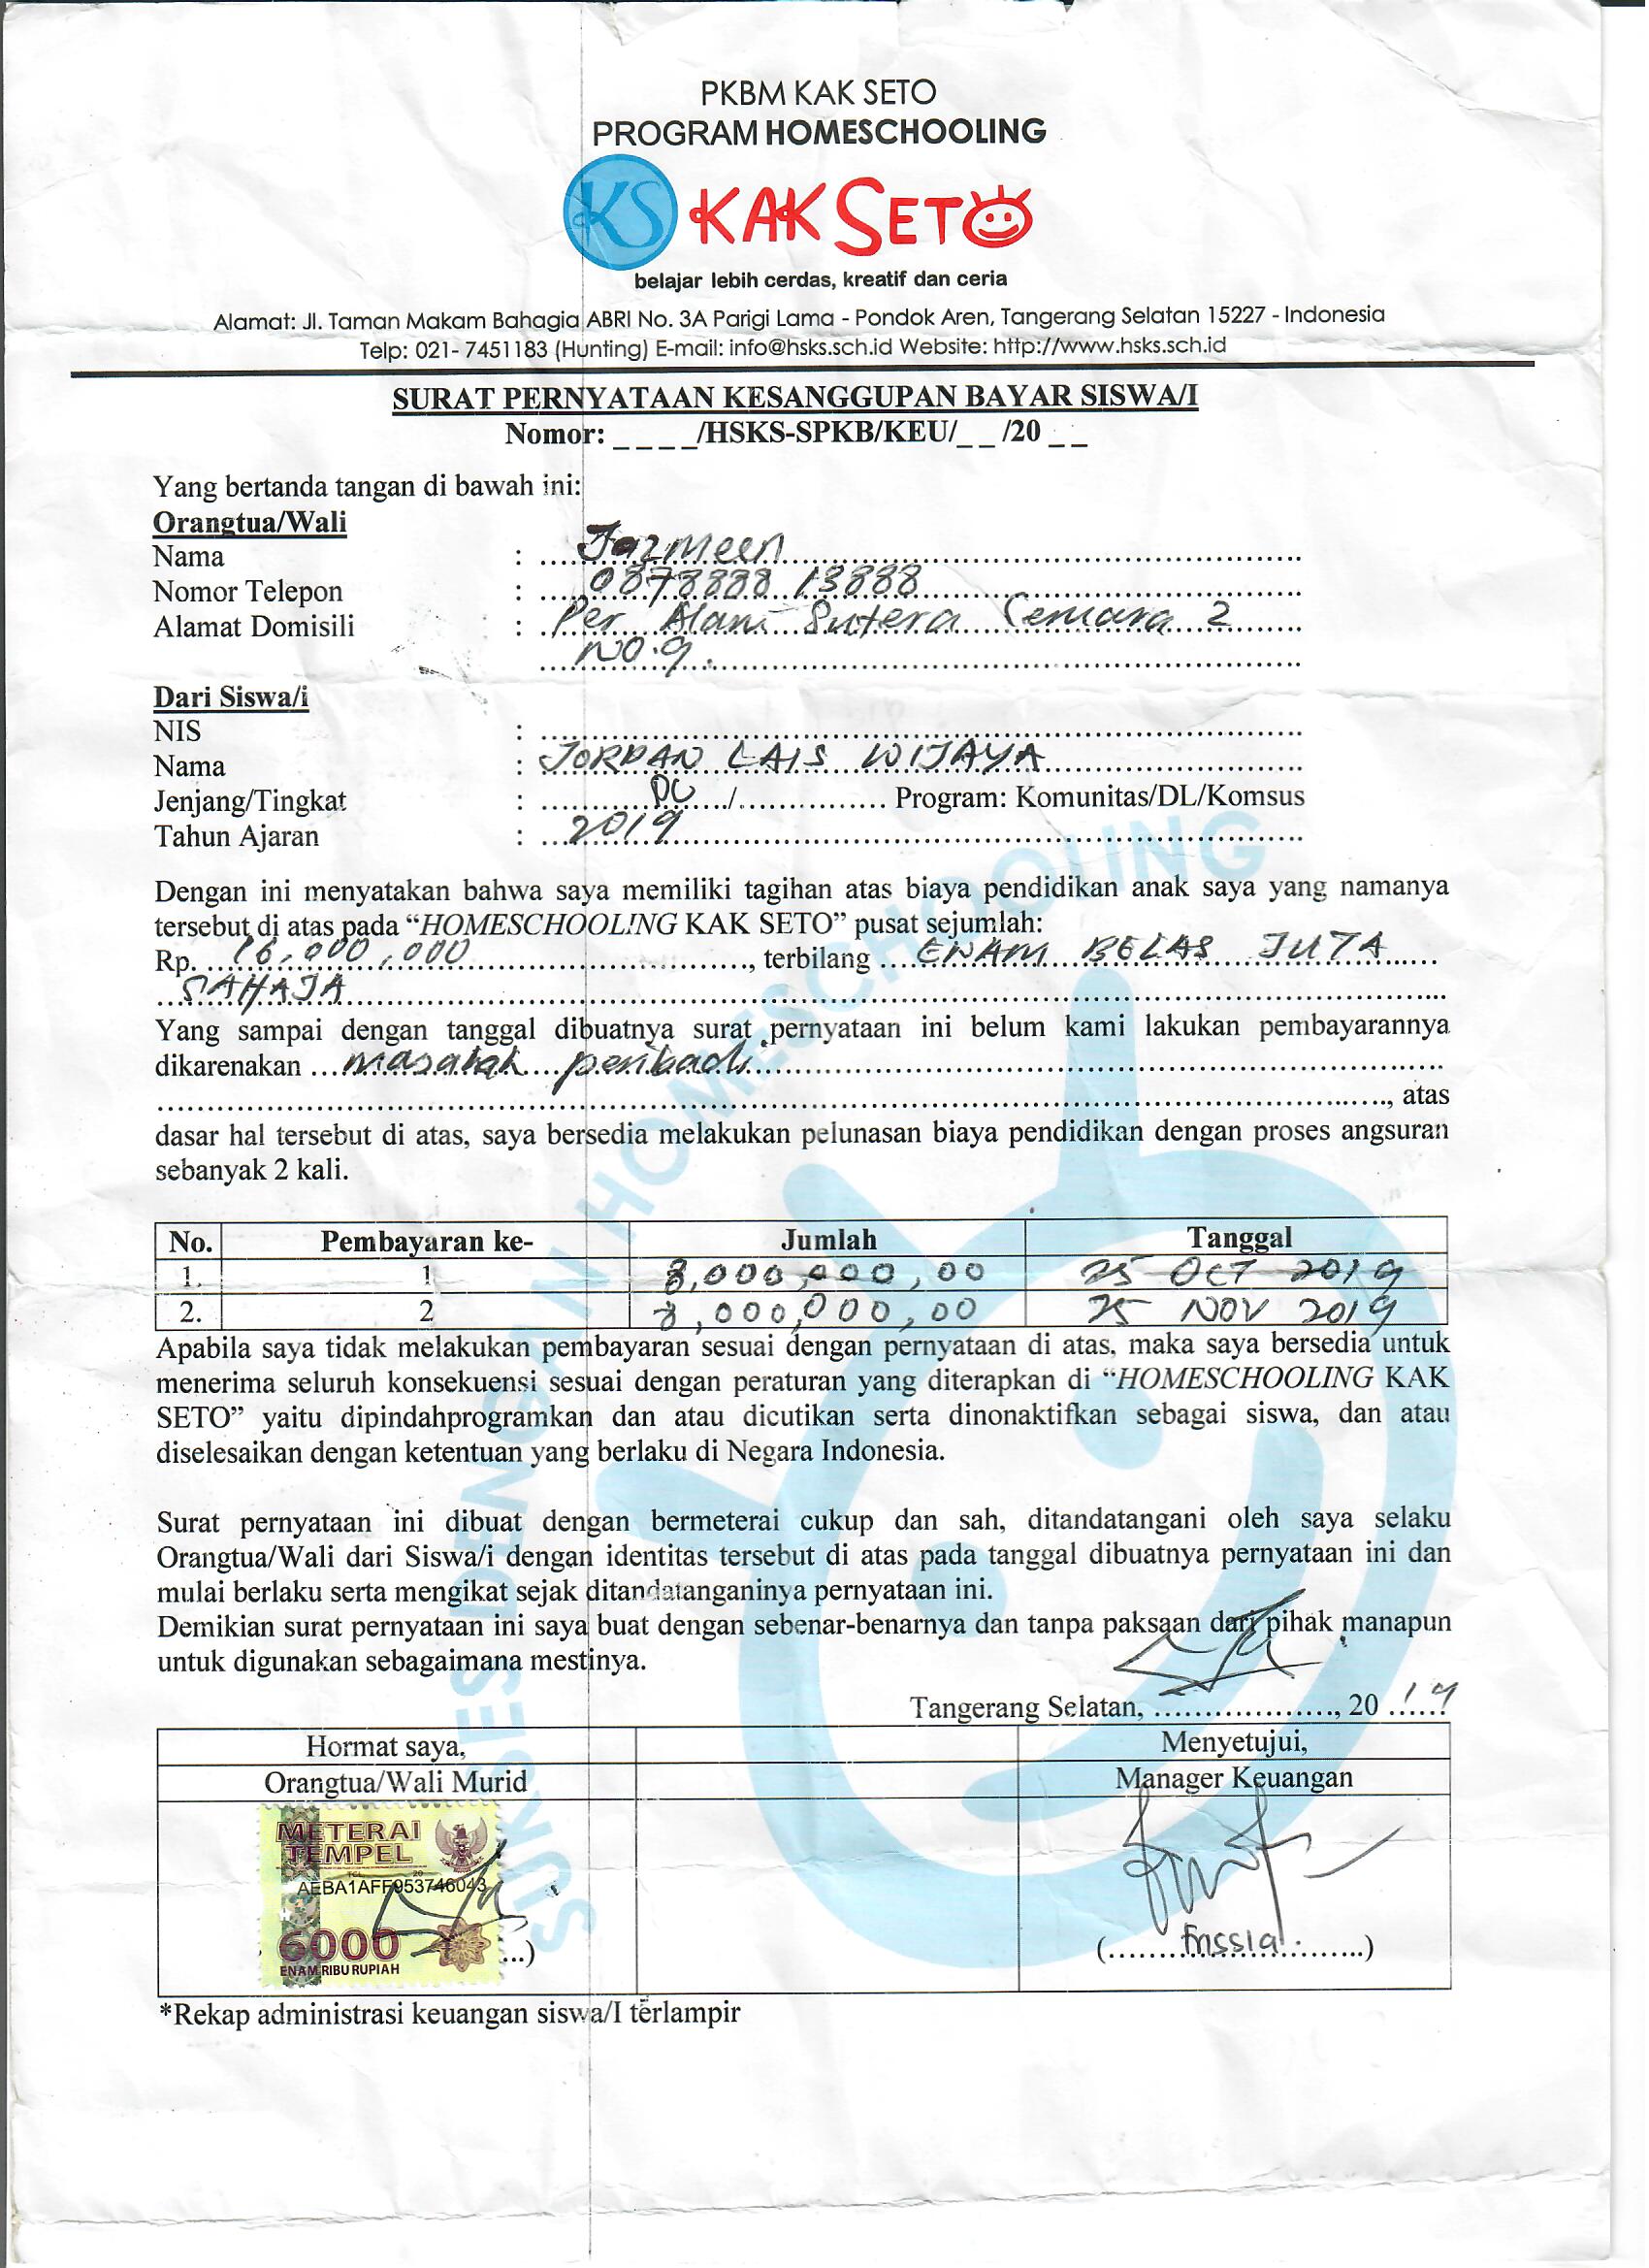 PKBM KAK SETO
PROGRAM HOMESCHOOLING
KS KAK SETO
belajar lebih cerdas, kreatif dan ceria
Alamat: Jl. Taman Makam Bahagia ABRI No. 3A Parigi Lama - Pondok Aren, Tangerang Selatan 15227 - Indonesia
Telp: 021- 7451183 (Hunting) E-mail: info@hsks.sch.id Website: http://www.hsks.sch.id
SURAT PERNYATAAN KESANGGUPAN BAYAR SISWA/I
Nomor: _ _ _ _/HSKS-SPKB/KEU/_ _ /20 _ _
Yang bertanda tangan di bawah ini:
Orangtua/Wali
Nama : Jazmeen
Nomor Telepon : 0878888 13888
Alamat Domisili : Per Alam Sutera Cemara 2
NO.9.
Dari Siswa/i
NIS :
Nama : JORDAN LAIS WIJAYA
Jenjang/Tingkat : / Program: Komunitas/DL/Komsus
Tahun Ajaran : 2019
Dengan ini menyatakan bahwa saya memiliki tagihan atas biaya pendidikan anak saya yang namanya
tersebut di atas pada “HOMESCHOOLING KAK SETO” pusat sejumlah:
Rp. 16,000,000, terbilang ENAM BELAS JUTA
SAHAJA
Yang sampai dengan tanggal dibuatnya surat pernyataan ini belum kami lakukan pembayarannya
dikarenakan masalah peribadi
, atas
dasar hal tersebut di atas, saya bersedia melakukan pelunasan biaya pendidikan dengan proses angsuran
sebanyak 2 kali.
No. Pembayaran ke- Jumlah Tanggal
1. 1 8,000,000,00 25 OCT 2019
2. 2 8,000,000,00 25 NOV 2019
Apabila saya tidak melakukan pembayaran sesuai dengan pernyataan di atas, maka saya bersedia untuk
menerima seluruh konsekuensi sesuai dengan peraturan yang diterapkan di “HOMESCHOOLING KAK
SETO” yaitu dipindahprogramkan dan atau dicutikan serta dinonaktifkan sebagai siswa, dan atau
diselesaikan dengan ketentuan yang berlaku di Negara Indonesia.
Surat pernyataan ini dibuat dengan bermeterai cukup dan sah, ditandatangani oleh saya selaku
Orangtua/Wali dari Siswa/i dengan identitas tersebut di atas pada tanggal dibuatnya pernyataan ini dan
mulai berlaku serta mengikat sejak ditandatanganinya pernyataan ini.
Demikian surat pernyataan ini saya buat dengan sebenar-benarnya dan tanpa paksaan dari pihak manapun
untuk digunakan sebagaimana mestinya.
Tangerang Selatan, ................., 20 19
Hormat saya, Menyetujui,
Orangtua/Wali Murid Manager Keuangan
METERAI
TEMPEL
TGL 20
AEBA1AFF953746043
6000
ENAM RIBU RUPIAH
*Rekap administrasi keuangan siswa/I terlampir
SUKSES DENGAN HOMESCHOOLING